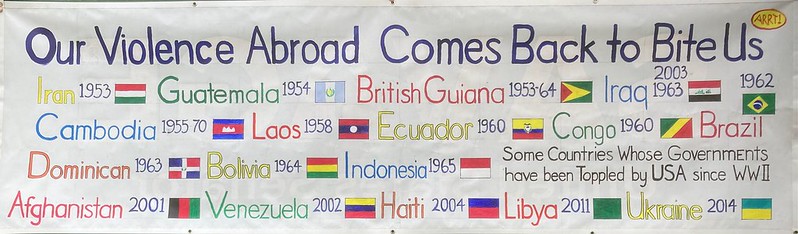 ARRT!
Our Violence Abroad Comes Back to Bite Us
Iran 1953 Guatemala 1954 British Guiana 1953-64 Iraq 2003 1963 1962
Cambodia 1955 70 Laos 1958 Ecuador 1960 Congo 1960 Brazil
Dominican 1963 Bolivia 1964 Indonesia 1965 Some Countries Whose Governments
have been Toppled by USA since WWII
Afghanistan 2001 Venezuela 2002 Haiti 2004 Libya 2011 Ukraine 2014